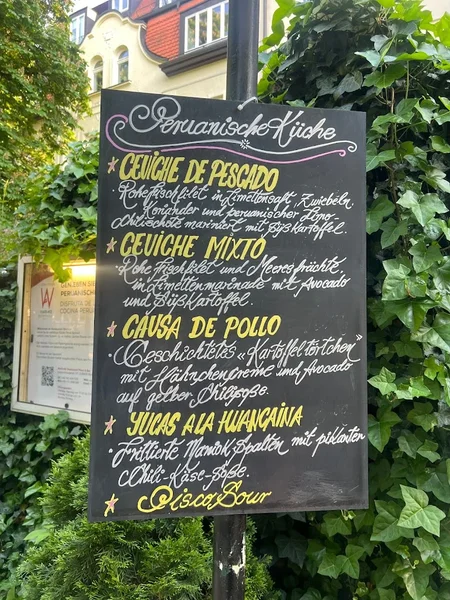 Peruanische Küche
CEVICHE DE PESCADO
Rohe Fischfilet in Limettensaft, Zwiebeln,
Koriander und peruanischer Limo-
Chilischote mariniert mit Süßkartoffel.
CEVICHE MIXTO
Rohe Fischfilet und Meeresfrüchte,
in Limettenmarinade mit Avocado
und Süßkartoffel.
CAUSA DE POLLO
Geschichtetes "Kartoffeltörtchen"
mit Hähnchencreme und Avocado
auf gelber Chilisoße.
YUCAS A LA HUANCAINA
Frittierte Maniok Spalten mit pikanten
Chili-Käse-Soße.
Pisco Sour
PERUANISCH
COCINA PERU